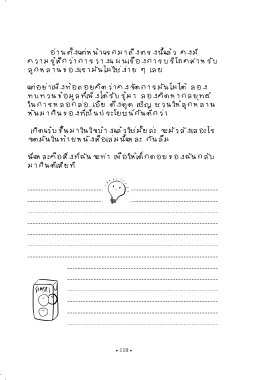 อ่านตั้งแต่หน้าแรกมาถึงตรงนี้แล้ว คงมี
ความรู้สึกว่าการวางแผนเรื่องการบริโภคสำหรับ
ลูกหลานของเรามันไม่ใช่ง่าย ๆ เลย
แต่อย่าเพิ่งท้อถอยคิดว่าคงจัดการมันไม่ได้ ลอง
ทบทวนข้อมูลที่เพิ่งได้รับรู้มา ลองคิดหากลยุทธ์
ในการหลอกล่อ เอ๊ย ดึงดูด เชิญ ชวนให้ลูกหลาน
หันมากินของที่เป็นประโยชน์กันดีกว่า
เกิดแรงขึ้นมาในใจบ้างแล้วใช่มั้ยล่ะ จะมัวลังเลอะไร
จดมันในท้ายหนังสือเล่มนี้แหละ กันลืม
นี่แหละคือสิ่งที่ฉันจะทำ เพื่อให้ได้ลูกของฉันกลับ
มากินดีเสียที
• 110 •